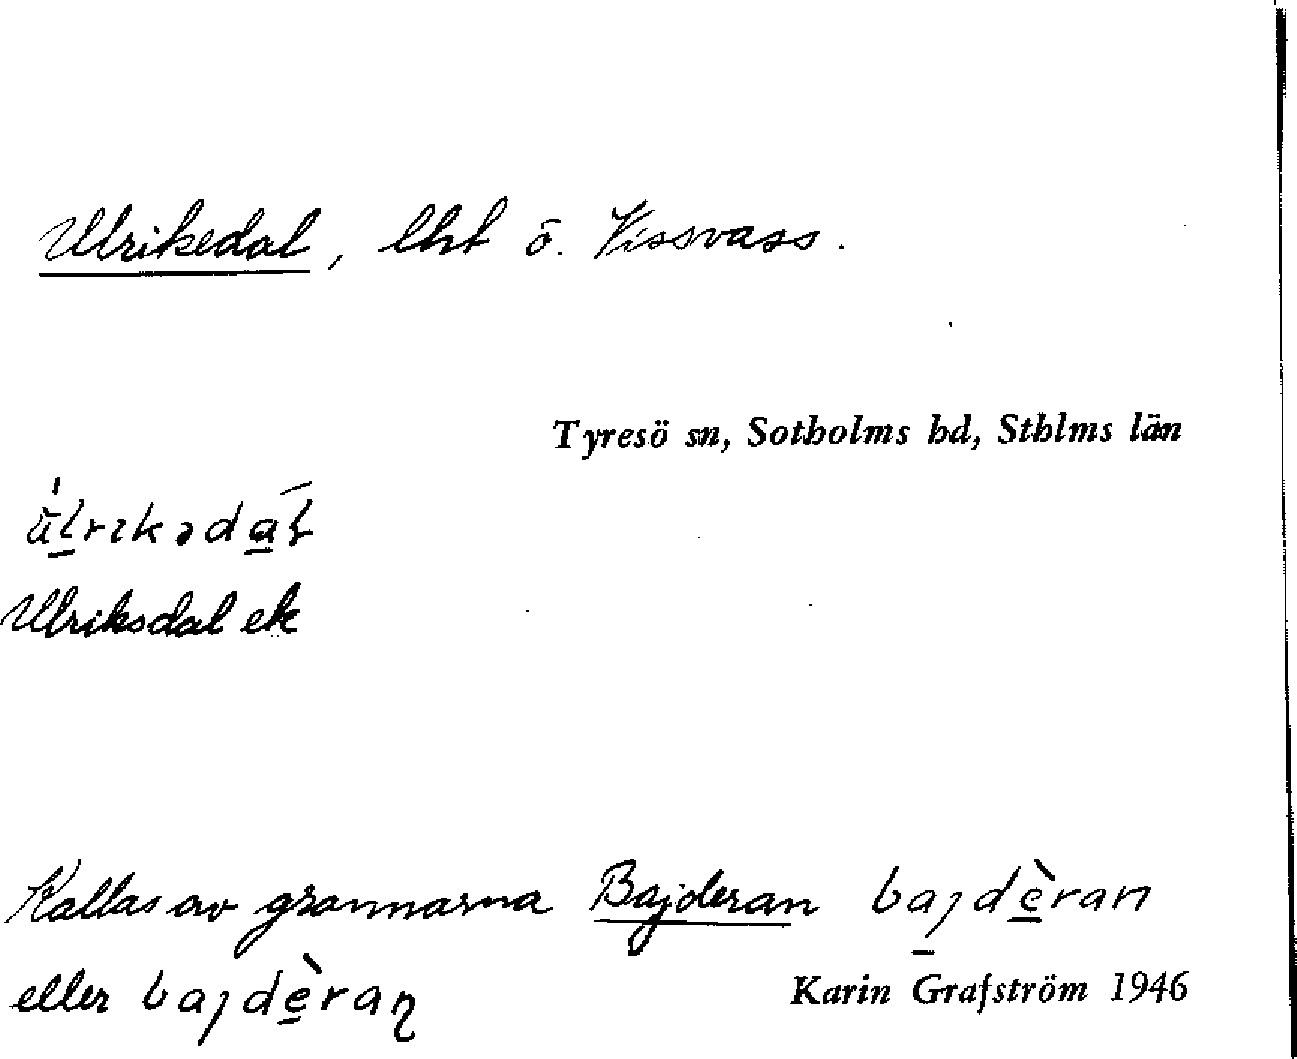 Ulrikedal, lht ö. Vissvass.
Tyresö sn, Sotholms hd, Sthlms län
Ulriksdal ek
Kallas av grannarna Bajderan bajdèran
eller bajdèraη
Karin Grafström 1946